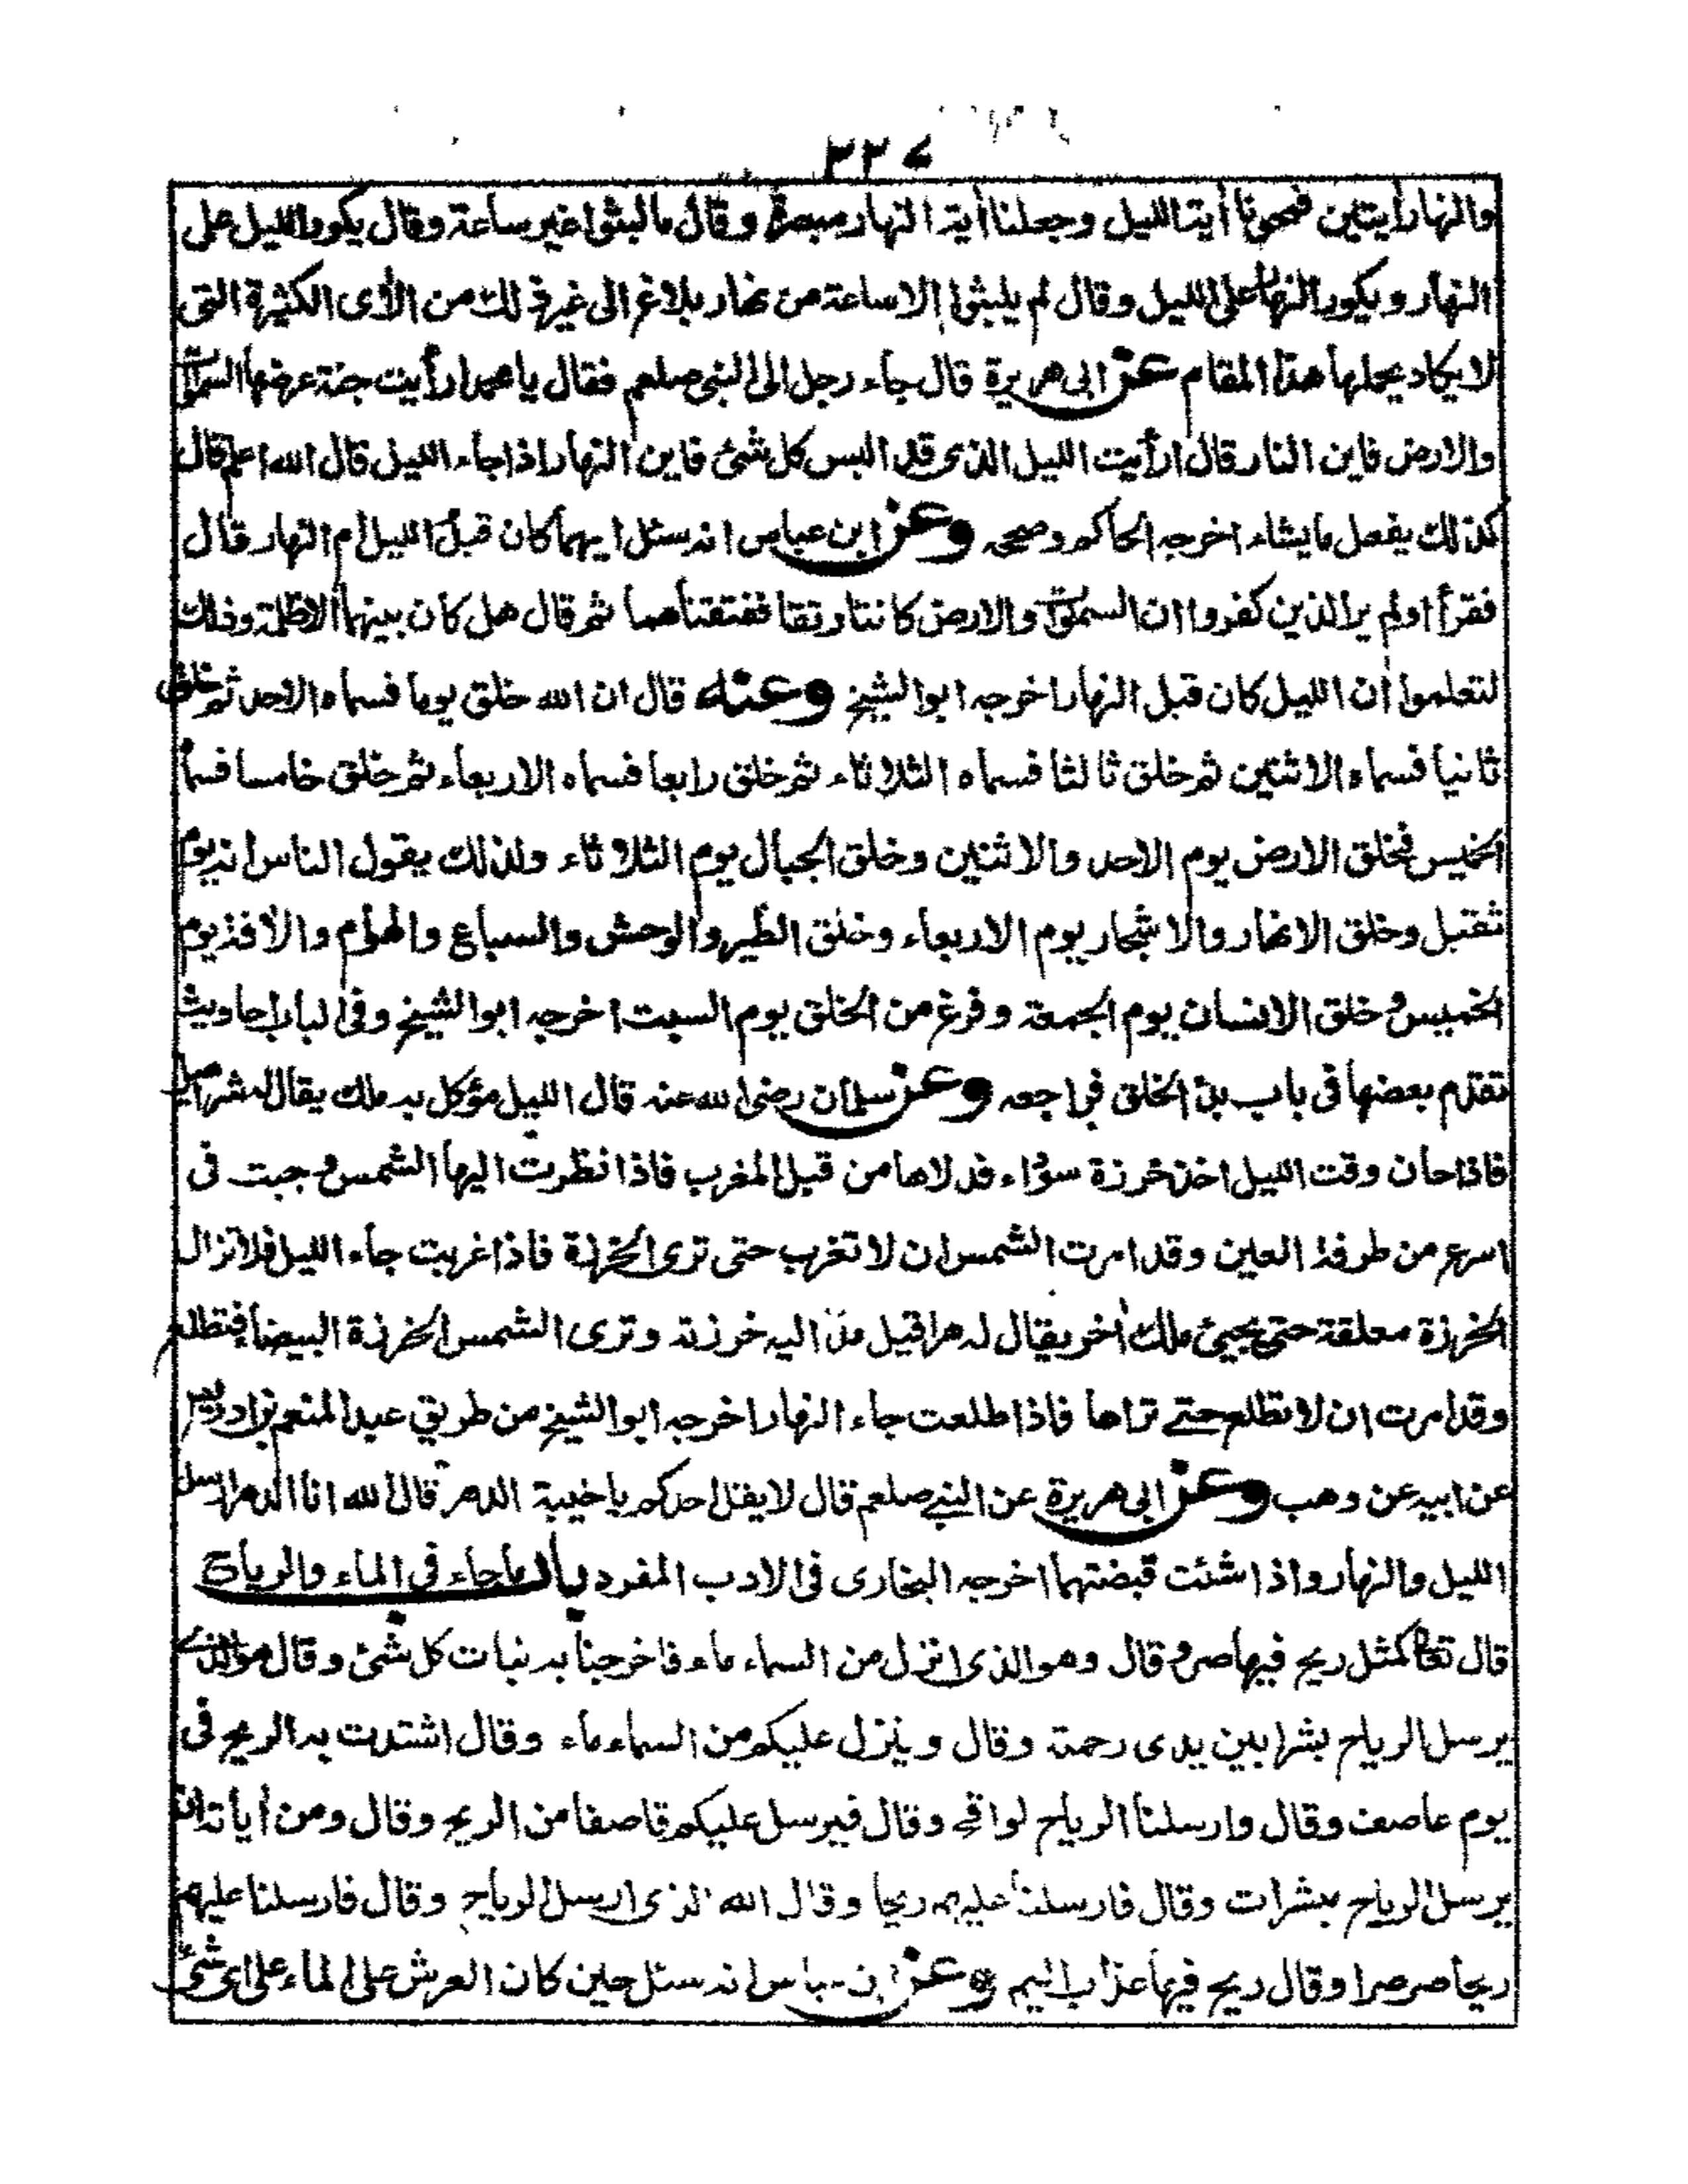 ٣٣٧
والنهار أيتين فمحونا أية الليل وجعلنا أية النهار مبصرة وقال ما لبثوا غير ساعة وقال يكور الليل على
النهار ويكور النهار على الليل وقال لم يلبثوا الا ساعة من نهار بلاغ الى غير ذلك من الأى الكثيرة التى
لا يكاد يحملها هذا المقام عن ابى هريرة قال جاء رجل الى النبى صلعم فقال يا محمد ارأيت جنة عرضها السموات
والارض فاين النار قال ارأيت الليل الذى قد البس كل شئ فاين النهار اذا جاء الليل قال الله اعلم قال
كذلك يفعل ما يشاء اخرجه الحاكم وصححه وعن ابن عباس انه سئل ايهما كان قبل الليل ام النهار قال
فقرأ اولم ير الذين كفروا ان السموات والارض كانتا رتقا ففتقناهما ثم قال هل كان بينهما الا ظلمة وذلك
لتعلموا ان الليل كان قبل النهار اخرجه ابو الشيخ وعنه قال ان الله خلق يوما فسماه الاحد ثم خلق
ثانيا فسماه الاثنين ثم خلق ثالثا فسماه الثلاثاء ثم خلق رابعا فسماه الاربعاء ثم خلق خامسا فسماه
الخميس فخلق الارض يوم الاحد والاثنين وخلق الجبال يوم الثلاثاء ولذلك يقول الناس انه يوم
ثقيل وخلق الانهار والاشجار يوم الاربعاء وخلق الطير والوحش والسباع والهوام والأفة يوم
الخميس وخلق الانسان يوم الجمعة وفرغ من الخلق يوم السبت اخرجه ابو الشيخ وفى الباب احاديث
تقدم بعضها فى باب بدأ الخلق فراجعه وعن سلمان رضى الله عنه قال الليل مؤكل به ملك يقال له شراهيل
فاذا حان وقت الليل اخذ خرزة سوداء فدلاها من قبل المغرب فاذا نظرت اليها الشمس وجبت فى
اسرع من طرفة العين وقد امرت الشمس ان لا تغرب حتى ترى الخرزة فاذا غربت جاء الليل فلا تزال
الخرزة معلقة حتى يجيئ ملك أخر يقال له هراقيل مدّ اليه خرزته وترى الشمس الخرزة البيضا فتطلع
وقد امرت ان لا تطلع حتى تراها فاذا طلعت جاء النهار اخرجه ابو الشيخ من طريق عبد المنعم بن ادريس
عن ابيه عن وهب وعن ابى هريرة عن النبى صلعم قال لا يقل احدكم يا خيبة الدهر قال الله انا الدهر ارسل
الليل والنهار واذا شئت قبضتهما اخرجه البخارى فى الادب المفرد باب ما جاء فى الماء والرياح
قال تعالى كمثل ريح فيها صر وقال وهو الذى انزل من السماء ماء فاخرجنا به نبات كل شئ وقال هو الذى
يرسل الرياح بشرا بين يدى رحمته وقال وينزل عليكم من السماء ماء وقال اشتدت به الريح فى
يوم عاصف وقال وارسلنا الرياح لواقح وقال فيرسل عليكم قاصفا من الريح وقال ومن أياته ان
يرسل الرياح مبشرات وقال فارسلنا عليهم ريحا وقال الله الذى ارسل الرياح وقال فارسلنا عليهم
ريحا صرصرا وقال ريح فيها عذاب اليم وعن ابن عباس انه سئل حين كان العرش على الماء على اى شئ